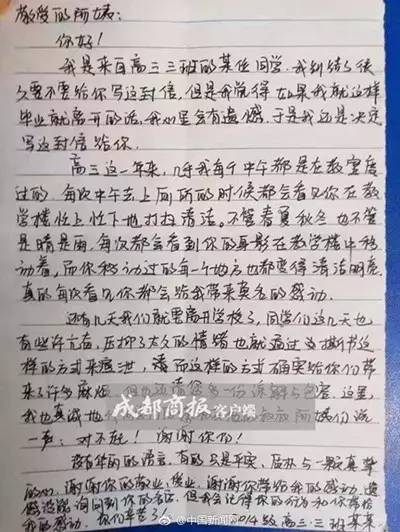 敬爱的阿姨：
你好！
我是来自高三三班的某位同学，我纠结了很
久要不要给你写这封信，但是我觉得如果我就这样
毕业就离开的话，我心里会有遗憾，于是我还是决定
写这封信给你。
高三这一年来，几乎我每个中午都是在教室度
过的，每次中午去上厕所的时候都会看见你在教
学楼忙上忙下地打扫清洁。不管春夏秋冬也不管
是晴是雨，每次都会看到你的身影在教学楼中移
动着，而你移动过的每一个地方也都变得清洁明亮，
真的每次看见你都会给我带来莫名的感动。
还有几天我们就要离开学校了，同学们这几天也
有些许亢奋，压抑了太久的情绪也就通过撕书这
样的方式来宣泄，然而这样的方式确实给你们带
来了许多麻烦，但也还请您多一份谅解与包容。这里，
我也真诚地 叔叔阿姨们说
一声：对不起！谢谢你们！
没有华丽的语言，有的只是平实、质朴与一颗真挚
的心，谢谢你的敬业、乐业，谢谢你带给我的感动，遗
憾没能询问到你的名字，但我会记得你的行为和你带给
我的感动。你们辛苦了！ 014级高三·三班某某
成都商报 客户端
@中国新闻网